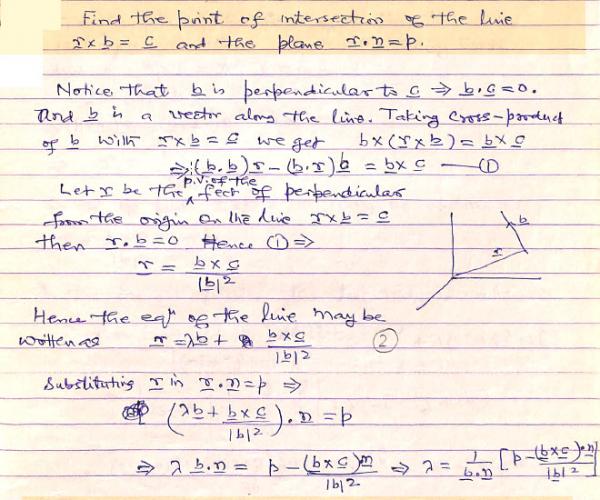 Find the point of intersection of the line
r × b = c and the plane r.n = p.
Notice that b is perpendicular to c ⇒ b.c = 0.
And b is a vector along the line. Taking cross-product
of b with r×b = c we get b×(r×b) = b×c
⇒ (b.b)r − (b.r)b = b×c —— (1)
Let r be the p.v. of the feet of perpendicular
from the origin on the line r×b = c
then r.b = 0 Hence (1) ⇒
r = b×c / |b|²
b
r
Hence the eqⁿ of the line may be
written as r = λb + b×c / |b|² (2)
Substituting r in r.n = p ⇒
(λb + b×c / |b|²).n = p
⇒ λ b.n = p − (b×c).n / |b|² ⇒ λ = 1 / b.n [p − (b×c).n / |b|²]